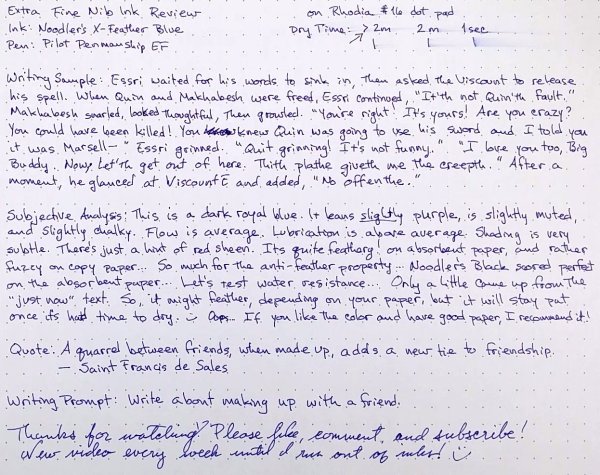 Extra Fine Nib Ink Review on Rhodia #16 dot pad
Ink: Noodler's X-Feather Blue Dry Time: >2m 2m 1sec
Pen: Pilot Penmanship EF
Writing Sample: Essri waited for his words to sink in, then asked the Viscount to release
his spell. When Quin and Makhabesh were freed, Essri continued, "It'th not Quin'th fault."
Makhabesh snarled, looked thoughtful, then growled. "You're right. It's yours! Are you crazy?
You could have been killed! You knew Quin was going to use his sword and I told you
it was Marsell—" Essri grinned. "Quit grinning! It's not funny." "I love you too, Big
Buddy. Now. Let'th get out of here. Thith plathe giveth me the creepth." After a
moment, he glanced at ViscountE and added, "No offenthe."
Subjective Analysis: This is a dark royal blue. It leans slightly purple, is slightly muted,
and slightly chalky. Flow is average. Lubrication is above average. Shading is very
subtle. There's just a hint of red sheen. It's quite feathery! on absorbent paper, and rather
fuzzy on copy paper... So much for the anti-feather property... Noodler's Black scored perfect
on the absorbent paper... Let's test water resistance... Only a little came up from the
"just now" text. So, it might feather, depending on your paper, but it will stay put
once it's had time to dry. Oops... If you like the color and have good paper, I recommend it!
Quote: A quarrel between friends, when made up, adds a new tie to friendship.
— Saint Francis de Sales
Writing Prompt: Write about making up with a friend.
Thanks for watching! Please like, comment, and subscribe!
New video every week until I run out of inks!